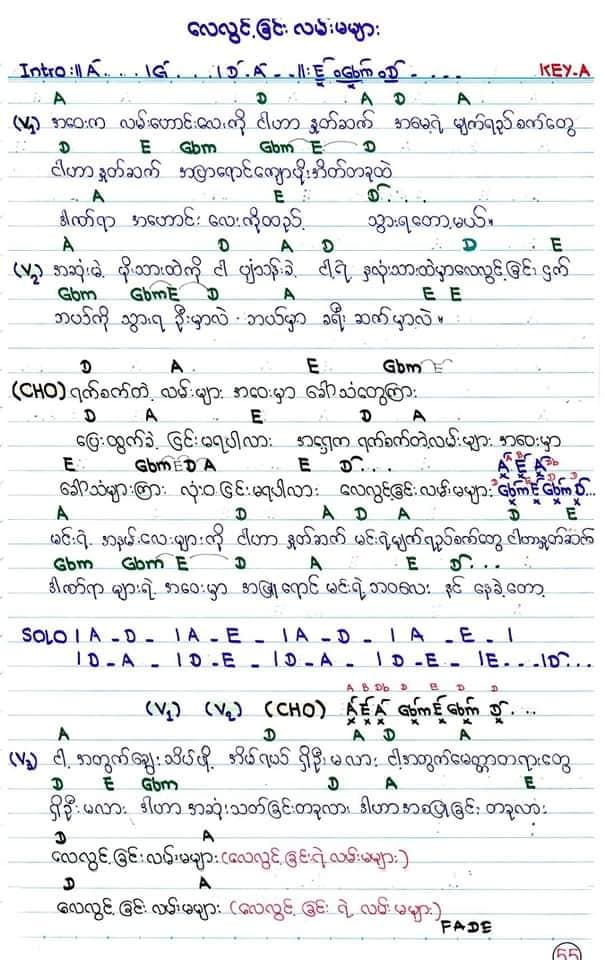 လေလွင့်ခြင်း လမ်းမများ
Intro:|| A . . . . | G . . . . | D . A - . . ||: E . Gbm . D - . . . . KEY-A
A D A D A
(V₁) အဝေးက လမ်းဟောင်းလေးကို ငါဟာ နှုတ်ဆက် အမေ့ရဲ့ မျက်ရည်စက်တွေ
D E Gbm Gbm E D
ငါဟာ နှုတ်ဆက် အပြာရောင်ကျောပိုးအိတ်တခုထဲ
A E D...
ဒါဏ်ရာ အဟောင်း လေးကိုထည့် သွားရတော့မယ်။
A D A D D E
(V₂) အဆုံးမဲ့ ပိုးသားထဲကို ငါ ပျံသန်းခဲ့ ငါ့ရဲ့ နှလုံးသားထဲမှာလေလွင့်ခြင်း၎က်
Gbm Gbm E D A E E
ဘယ်ကို သွားရ ဦးမှာလဲ ဘယ်မှာ ခရီး ဆက်မှာလဲ။
D A E Gbm E
(CHO) ရက်စက်တဲ့ လမ်းများ အဝေးမှာ ခေါ်သံတွေကြား
D A E D A
ပြေးထွက်ခဲ့ ခြင်းမရပါလား အရှေ့က ရက်စက်တဲ့လမ်းများ အဝေးမှာ
E Gbm E D A E D... A E A
ခေါ်သံများကြား လုံးဝ ခြင်းမရပါလား လေလွင့်ခြင်းလမ်းမများ Gbm E Gbm D...
A D A D A D E
မင်းရဲ့ အနမ်းလေးများကို ငါဟာ နှုတ်ဆက် မင်းရဲ့မျက်ရည်စက်တွေ ငါဟာနှုတ်ဆက်
Gbm Gbm E D A E D...
ဒါဏ်ရာ များရဲ့ အဝေးမှာ အဖြူရောင် မင်းရဲ့ဘဝလေး နင် နေခဲ့တော့
SOLO | A - D - | A - E - | A - D - | A - E - |
| D - A - | D - E - | D - A - | D - E - | E . . . | D . . .
A B Db D E D D
(V₁) (V₂) (CHO) A E A Gbm E Gbm D . . .
A D A D A
(V₃) ငါ့ အတွက်ချွေးသိပ်ဖို့ အိမ်ရယ် ရှိဦးမလား ငါ့အတွက်မေတ္တာတရားတွေ
D E Gbm D A E
ရှိဦးမလား ဒါဟာ အဆုံးသတ်ခြင်းတခုလား ဒါဟာအစပြုခြင်း တခုလား
D A
လေလွင့်ခြင်းလမ်းမများ (လေလွင့်ခြင်းရဲ့ လမ်းမများ)
D A
လေလွင့်ခြင်း လမ်းမများ (လေလွင့်ခြင်း ရဲ့ လမ်းမများ)
FADE
55